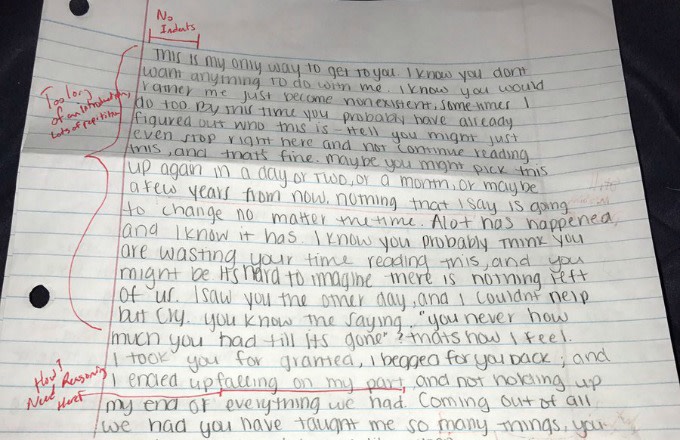 No
Indents
This is my only way to get to you. I know you dont
want anything to do with me. I know you would
rather me just become nonexistent, sometimes I
do too. By this time you probably have already
figured out who this is - Hell you might just
even stop right here and not continue reading
this, and thats fine. maybe you might pick this
up again in a day or two, or a month, or maybe
a few years from now. nothing that I say is going
to change no matter the time. Alot has happened,
and I know it has. I know you probably think you
are wasting your time reading this, and you
might be. Its hard to imagine there is nothing left
of us. I saw you the other day, and I couldnt help
but cry. you know the saying, "you never how
much you had till its gone"? thats how I feel.
I took you for granted, I begged for you back; and
I ended up falling on my part, and not holding up
my end of everything we had. Coming out of all
we had you have taught me so many things, you
Too long
of an introduction,
Lots of repetition
How?
Need Reasoning
Here!